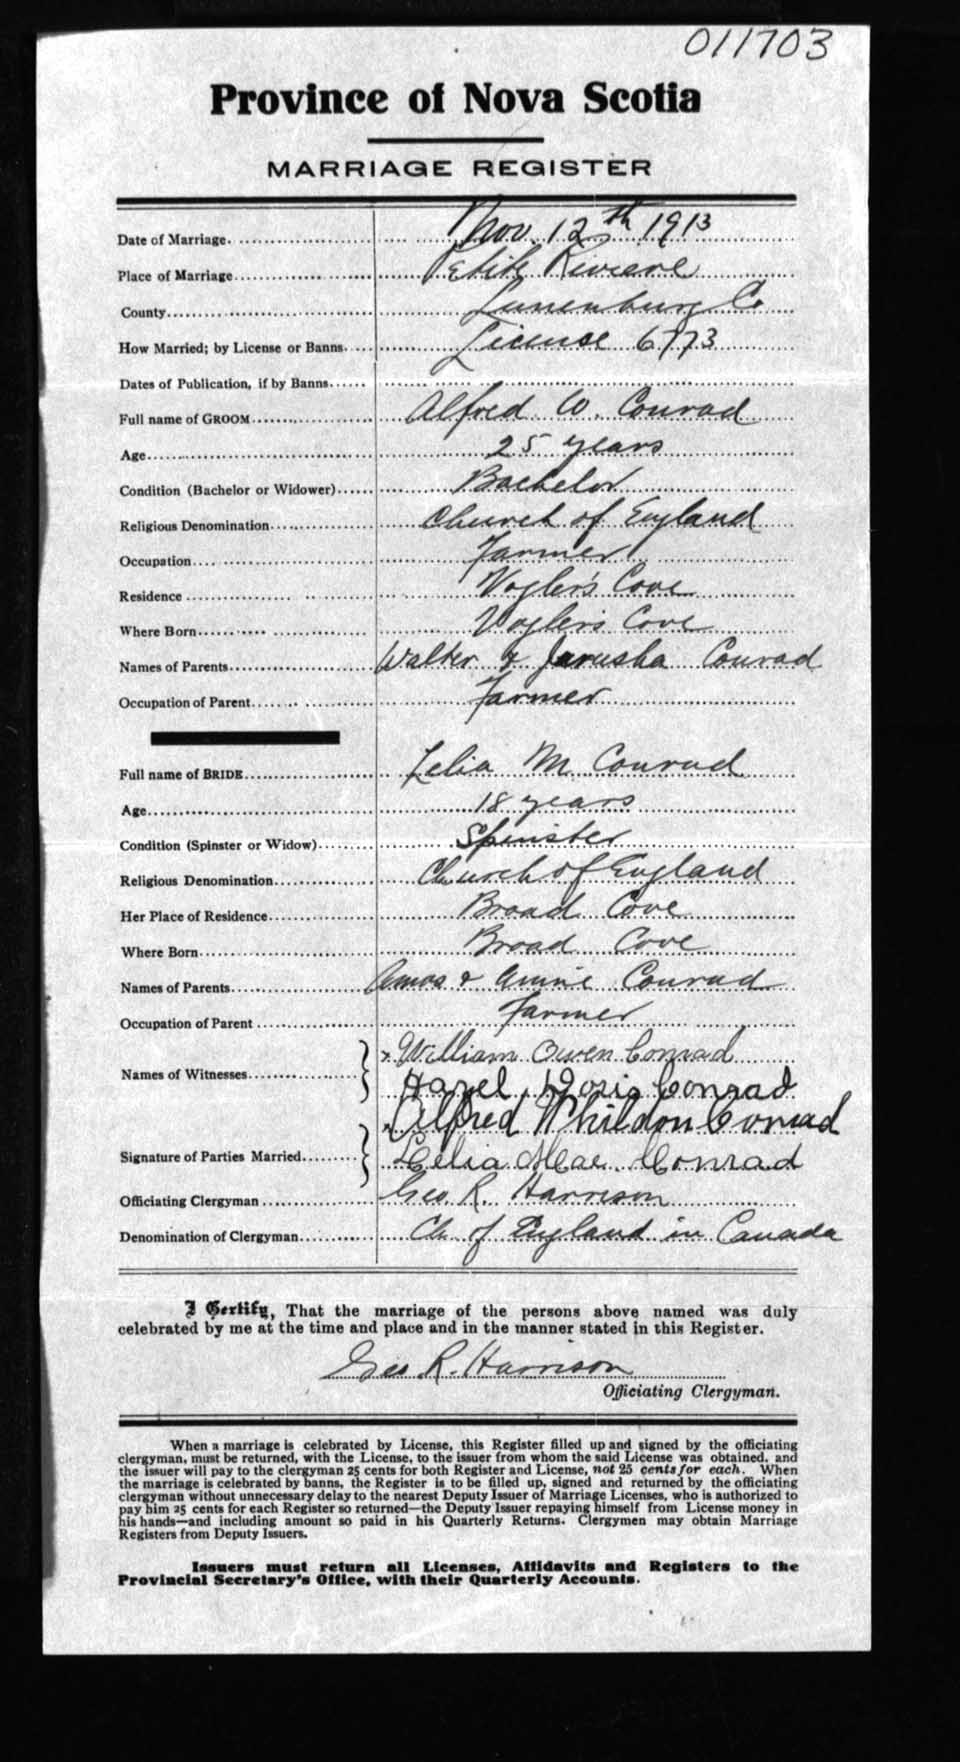 011703
Province of Nova Scotia
MARRIAGE REGISTER
Date of Marriage Nov. 12th 1913
Place of Marriage Petite Riviere
County Lunenburg Co.
How Married; by License or Banns License 6773
Dates of Publication, if by Banns
Full name of GROOM Alfred W. Conrad
Age 25 years
Condition (Bachelor or Widower) Bachelor
Religious Denomination Church of England
Occupation Farmer
Residence Vogler's Cove
Where Born Vogler's Cove
Names of Parents Walter & Jerusha Conrad
Occupation of Parent Farmer
Full name of BRIDE Lelia M Conrad
Age 18 years
Condition (Spinster or Widow) Spinster
Religious Denomination Church of England
Her Place of Residence Broad Cove
Where Born Broad Cove
Names of Parents Amos & Annie Conrad
Occupation of Parent Farmer
Names of Witnesses William Owen Conrad
Hazel Doris Conrad
Signature of Parties Married Alfred Whildon Conrad
Lelia Mae Conrad
Officiating Clergyman Geo R. Harrison
Denomination of Clergyman Ch. of England in Canada
I Certify, That the marriage of the persons above named was duly
celebrated by me at the time and place and in the manner stated in this Register.
Geo R. Harrison
Officiating Clergyman.
When a marriage is celebrated by License, this Register filled up and signed by the officiating
clergyman, must be returned, with the License, to the issuer from whom the said License was obtained, and
the issuer will pay to the clergyman 25 cents for both Register and License, not 25 cents for each. When
the marriage is celebrated by banns, the Register is to be filled up, signed and returned by the officiating
clergyman without unnecessary delay to the nearest Deputy Issuer of Marriage Licenses, who is authorized to
pay him 25 cents for each Register so returned—the Deputy Issuer repaying himself from License money in
his hands—and including amount so paid in his Quarterly Returns. Clergymen may obtain Marriage
Registers from Deputy Issuers.
Issuers must return all Licenses, Affidavits and Registers to the
Provincial Secretary's Office, with their Quarterly Accounts.